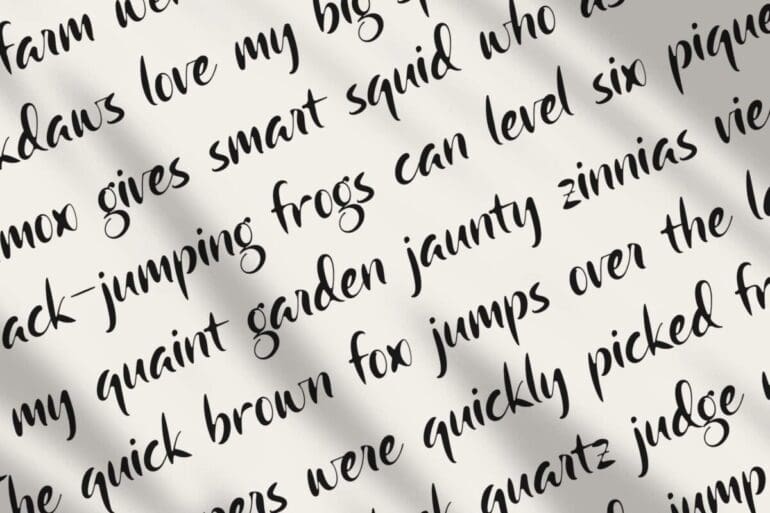 farm we
kdaws love my big
mox gives smart squid who as
ack-jumping frogs can level six pique
my quaint garden jaunty zinnias vie
The quick brown fox jumps over the la
pers were quickly picked fr
k quartz judge
jump